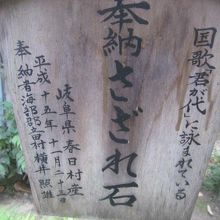 国歌君が代に詠まれている
奉納さざれ石
岐阜県春日村産
平成十五年十一月二十三日
奉納者海部郡立田村横井照雄